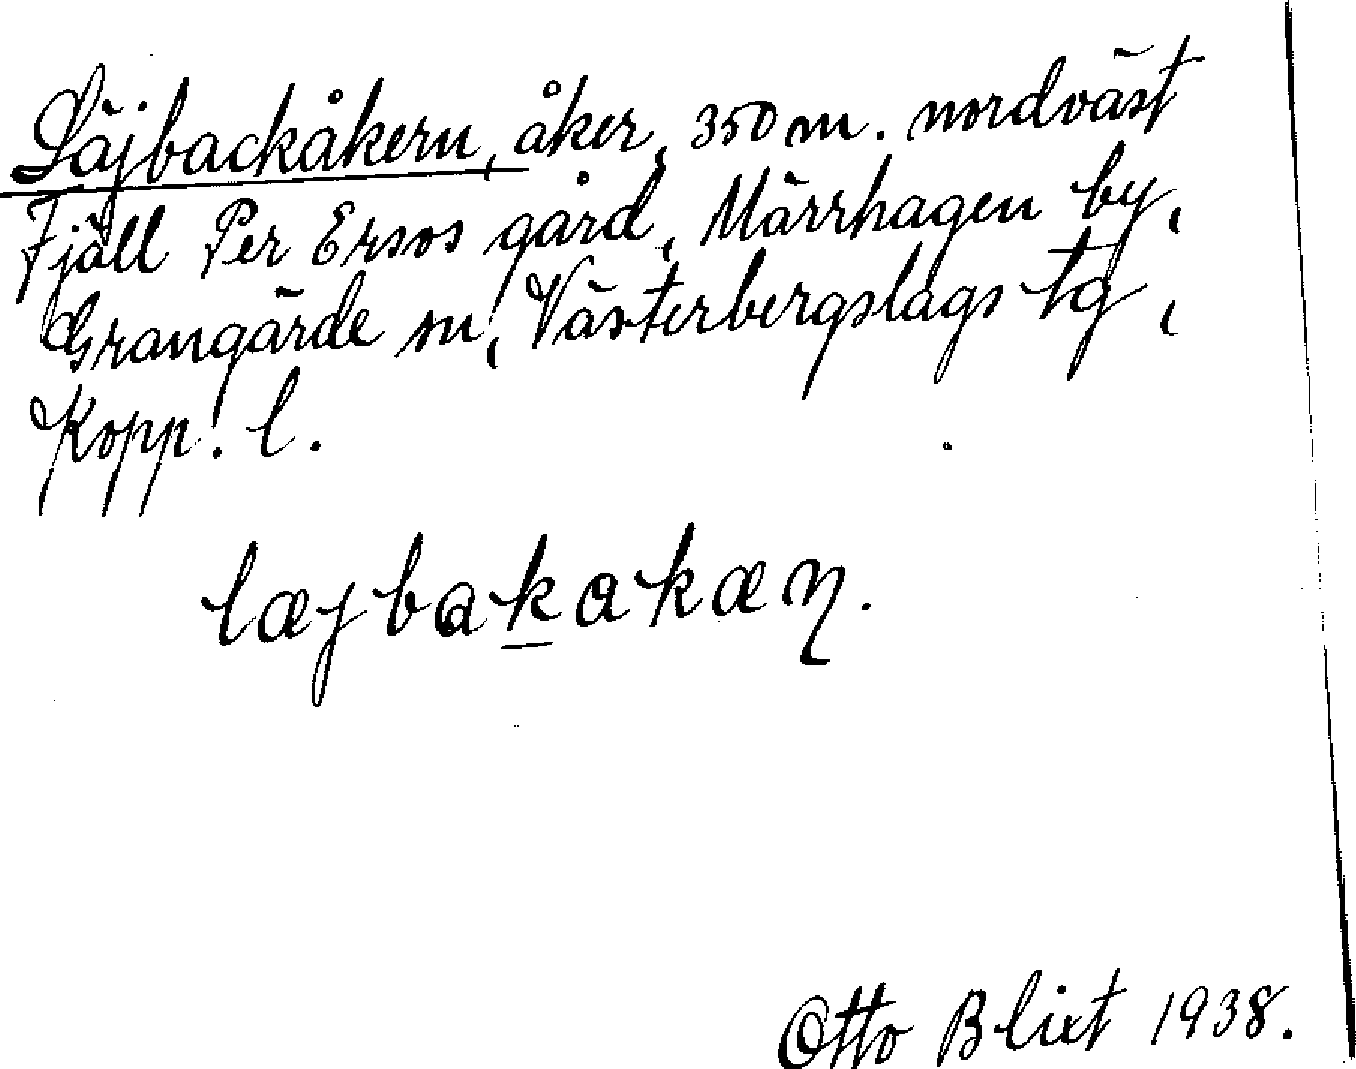 Läjbackåkern, åker, 350 m. nordväst
Fjäll Per Ersos gård, Märrhagen by,
Grangärde sn, Västerbergslags tg,
Kopp. l.
læjbakakæɳ.
Otto Blixt 1938.